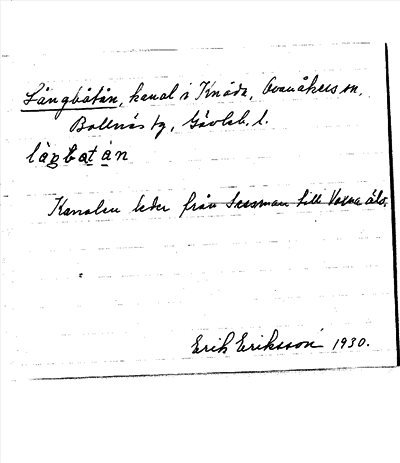 Långbåtån, kanal i Knåda, Ovanåkers sn,
Bollnäs tg, Gävleb. l.
lågbatån
Kanalen leder från Sessman till Voxna älv.
Erik Eriksson 1930.